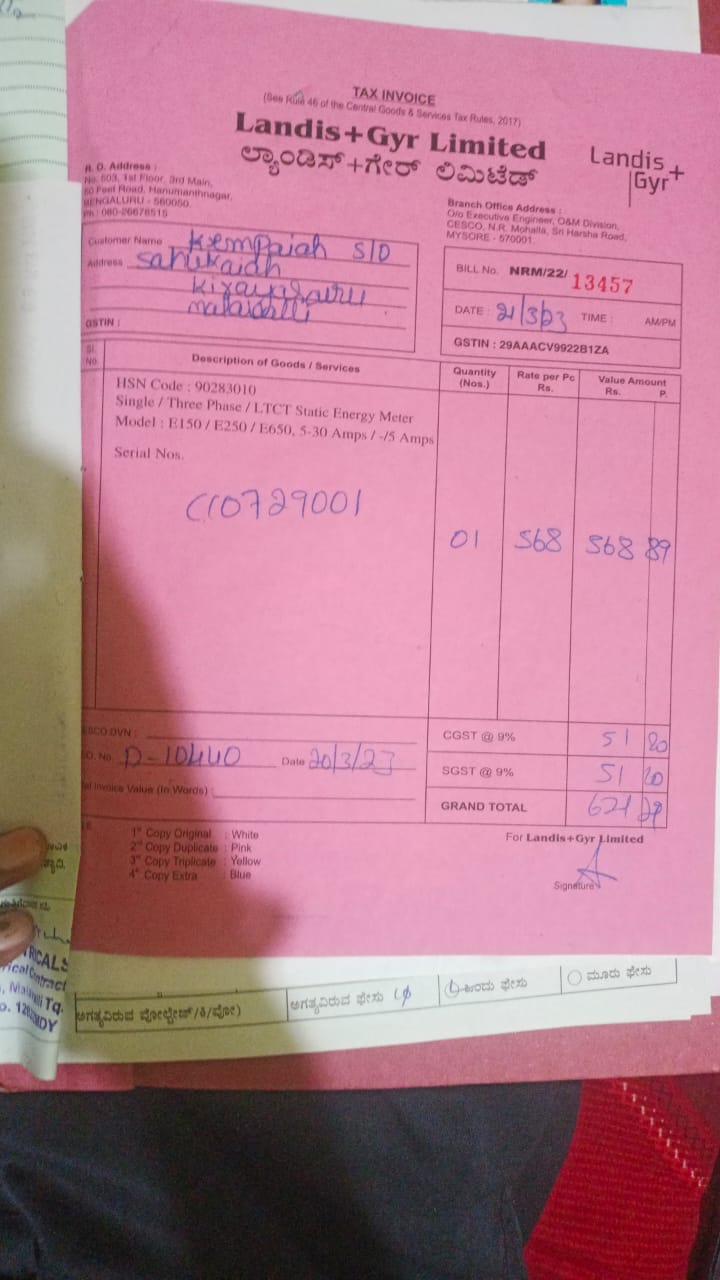 TAX INVOICE
(See Rule 46 of the Central Goods & Services Tax Rules, 2017)
Landis+Gyr Limited
ಲ್ಯಾಂಡಿಸ್+ಗೇರ್ ಲಿಮಿಟೆಡ್
Landis+
Gyr
R. O. Address :
No. 503, 1st Floor, 3rd Main,
60 Feet Road, Hanumanthnagar,
BENGALURU - 560050.
Ph : 080-26678515
Branch Office Address :
O/o Executive Engineer, O&M Division,
CESCO, N.R. Mohalla, Sri Harsha Road,
MYSORE - 570001.
Customer Name Kempaiah S/O
Address
GSTIN :
BILL No. NRM/22/ 13457
DATE : 21/3/23 TIME : AM/PM
GSTIN : 29AAACV9922B1ZA
Sl. No. Description of Goods / Services Quantity (Nos.) Rate per Pc Rs. Value Amount Rs. P.
HSN Code : 90283010
Single / Three Phase / LTCT Static Energy Meter
Model : E150 / E250 / E650, 5-30 Amps / -/5 Amps
Serial Nos.
C10729001
01 568 568 89
ESCO DVN :
O. No. D-10440 Date 20/3/23
al Invoice Value (In Words)
CGST @ 9% 51 20
SGST @ 9% 51 20
GRAND TOTAL 671 29
1st Copy Original : White
2nd Copy Duplicate : Pink
3rd Copy Triplicate : Yellow
4th Copy Extra : Blue
For Landis+Gyr Limited
Signature
RICALS
rical Contract
Tq.
ಅಗತ್ಯವಿರುವ ವೋಲ್ಟೇಜ್/ಕಿ/ವೋ)
ಅಗತ್ಯವಿರುವ ಫೇಸು 1φ
ಒಂದು ಫೇಸು
ಮೂರು ಫೇಸು